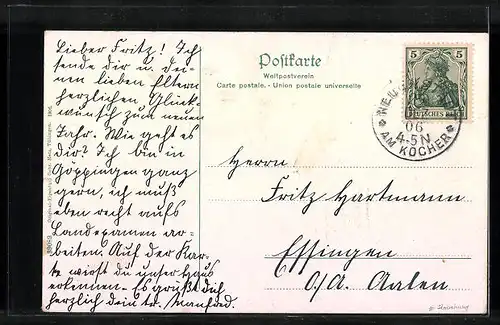 Lieber Fritz! Ich
sende dir u. dei-
nen lieben Eltern
herzlichen Glück-
wunsch zum neuen
Jahr. Wie geht es
dir? Ich bin in
Göppingen ganz
gern, ich muß
eben recht aufs
Landexamen ar-
beiten. Auf der Kar-
te wirst du unser Haus
erkennen. Es grüßt dich
herzlich dein tr. Manfred.
Postkarte
Weltpostverein
Carte postale. - Union postale universelle
5 5
DEUTSCHES REICH
06
4-5N
AM KOCHER
Herrn
Fritz Hartmann
Essingen
O/A. Aalen